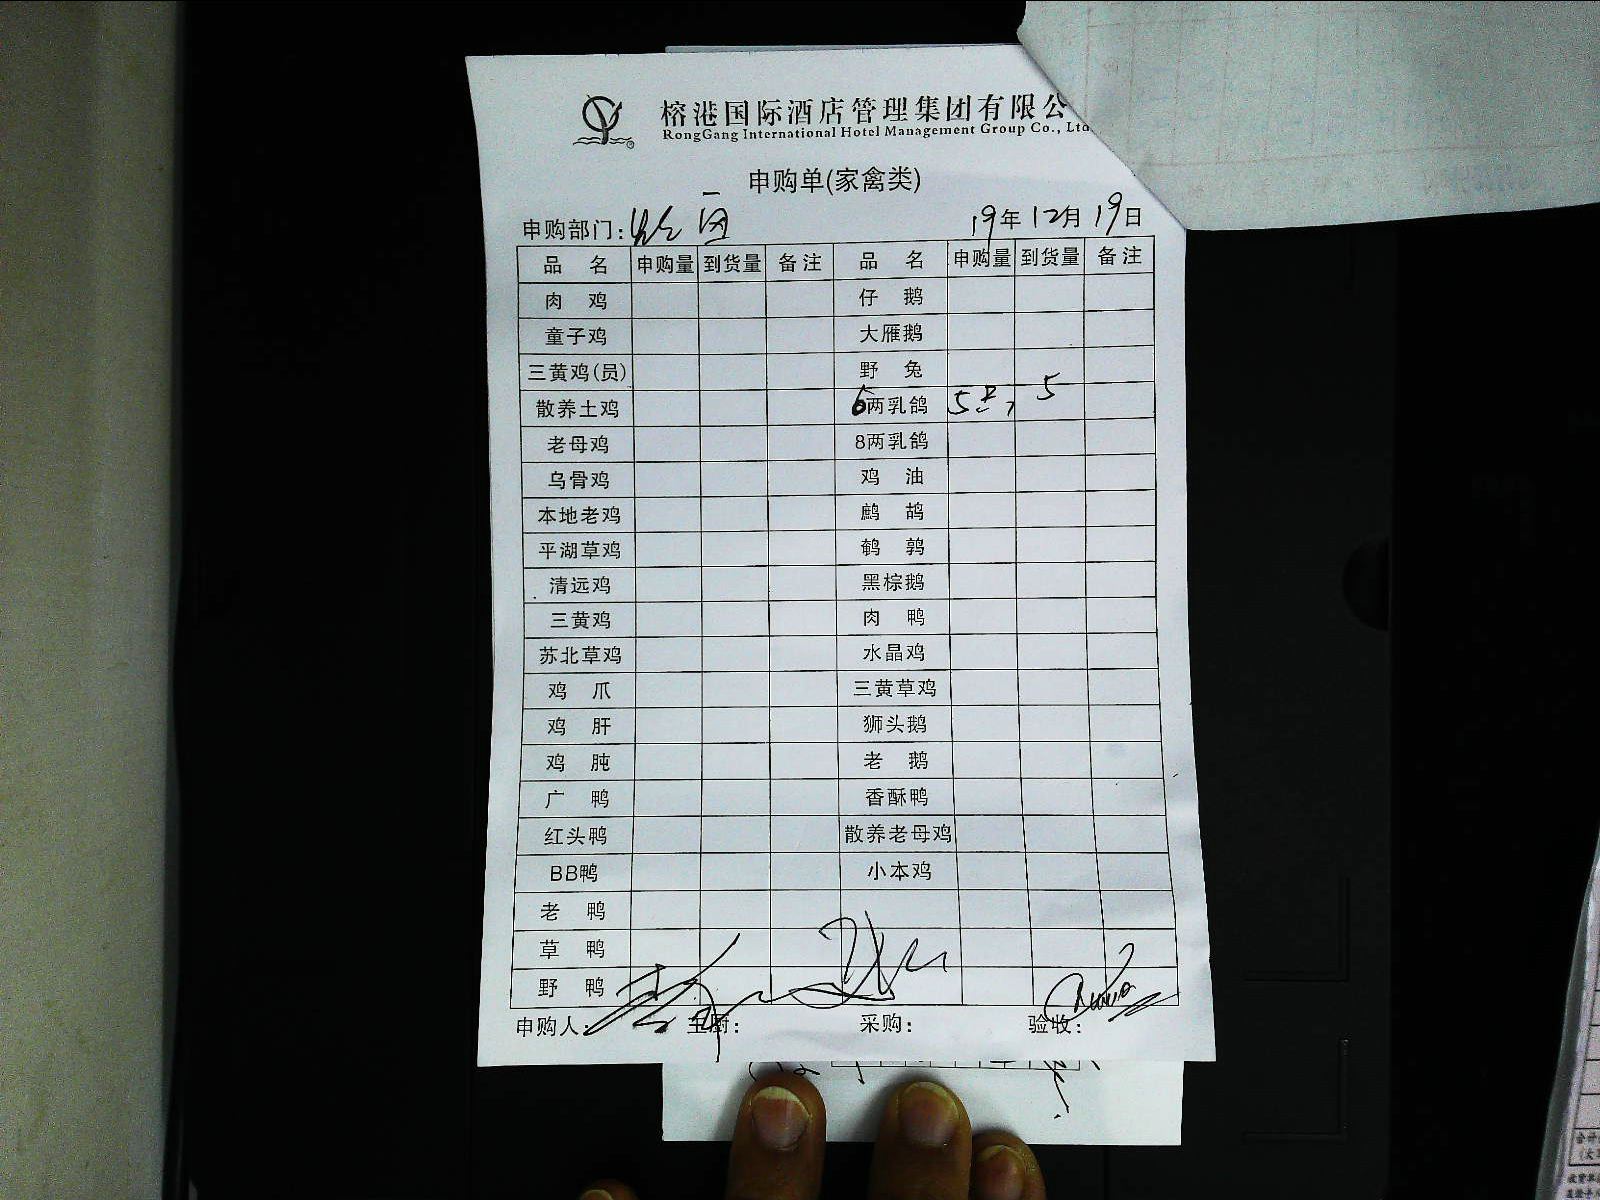 榕港国际酒店管理集团有限公
RongGang International Hotel Management Group Co., Ltd
申购单(家禽类)
申购部门: 19年12月19日
品 名 申购量 到货量 备注 品 名 申购量 到货量 备注
肉 鸡 仔 鹅
童子鸡 大雁鹅
三黄鸡(员) 野 兔
散养土鸡 6两乳鸽 5 5
老母鸡 8两乳鸽
乌骨鸡 鸡 油
本地老鸡 鹧 鸪
平湖草鸡 鹌 鹑
清远鸡 黑棕鹅
三黄鸡 肉 鸭
苏北草鸡 水晶鸡
鸡 爪 三黄草鸡
鸡 肝 狮头鹅
鸡 肫 老 鹅
广 鸭 香酥鸭
红头鸭 散养老母鸡
BB鸭 小本鸡
老 鸭
草 鸭
野 鸭
申购人: 主厨: 采购: 验收: